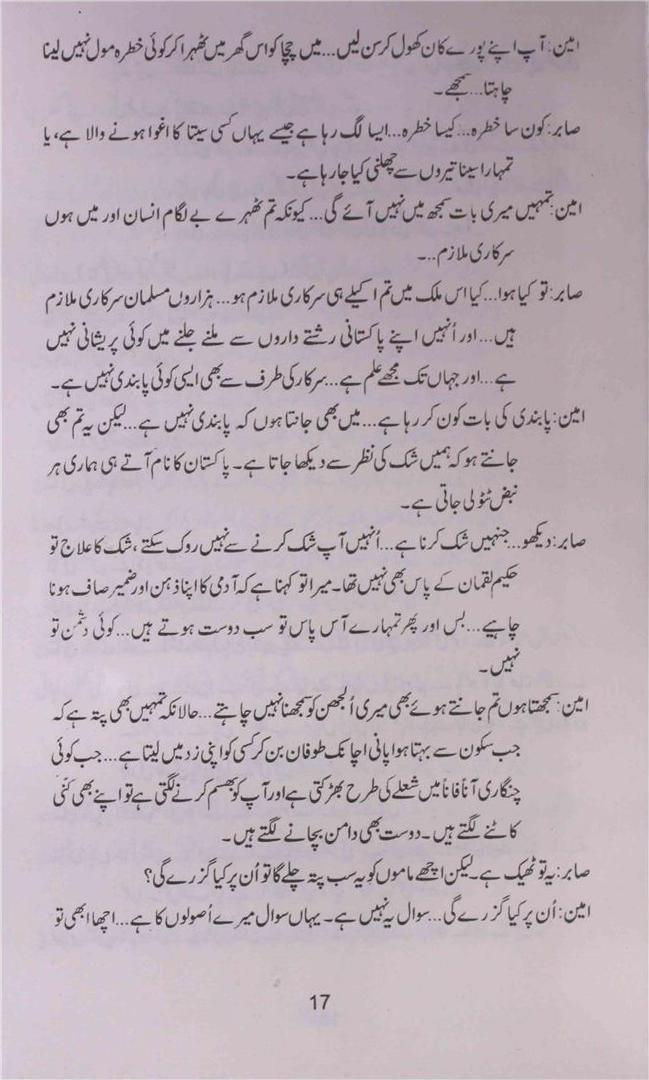 امین: آپ اپنے پورے کان کھول کر سن لیں... میں چچا کو اس گھر میں ٹھہرا کر کوئی خطرہ مول نہیں لینا
چاہتا... سمجھے۔
صابر: کون سا خطرہ... کیسا خطرہ... ایسا لگ رہا ہے جیسے یہاں کسی سیتا کا اغوا ہونے والا ہے، یا
تمہارا سینا تیروں سے چھلنی کیا جا رہا ہے۔
امین: تمہیں میری بات سمجھ میں نہیں آئے گی... کیونکہ تم ٹھہرے بے لگام انسان اور میں ہوں
سرکاری ملازم...
صابر: تو کیا ہوا... کیا اس ملک میں تم اکیلے ہی سرکاری ملازم ہو... ہزاروں مسلمان سرکاری ملازم
ہیں... اور اُنہیں اپنے پاکستانی رشتے داروں سے ملنے جلنے میں کوئی پریشانی نہیں
ہے... اور جہاں تک مجھے علم ہے... سرکار کی طرف سے بھی ایسی کوئی پابندی نہیں ہے۔
امین: پابندی کی بات کون کر رہا ہے... میں بھی جانتا ہوں کہ پابندی نہیں ہے... لیکن یہ تم بھی
جانتے ہو کہ ہمیں شک کی نظر سے دیکھا جاتا ہے۔ پاکستان کا نام آتے ہی ہماری ہر
نبض ٹٹولی جاتی ہے۔
صابر: دیکھو... جنہیں شک کرنا ہے... اُنہیں آپ شک کرنے سے نہیں روک سکتے، شک کا علاج تو
حکیم لقمان کے پاس بھی نہیں تھا۔ میرا تو کہنا ہے کہ آدمی کا اپنا ذہن اور ضمیر صاف ہونا
چاہیے... بس اور پھر تمہارے آس پاس تو سب دوست ہوتے ہیں... کوئی دشمن تو
نہیں۔
امین: سمجھتا ہوں تم جانتے ہوئے بھی میری اُلجھن کو سمجھنا نہیں چاہتے... حالانکہ تمہیں بھی پتہ ہے کہ
جب سکون سے بہتا ہوا پانی اچانک طوفان بن کر کسی کو اپنی زد میں لیتا ہے... جب کوئی
چنگاری آناً فاناً میں شعلے کی طرح بھڑکتی ہے اور آپ کو بھسم کرنے لگتی ہے تو اپنے بھی کنّی
کاٹنے لگتے ہیں۔ دوست بھی دامن بچانے لگتے ہیں۔
صابر: یہ تو ٹھیک ہے۔ لیکن اچھے ماموں کو یہ سب پتہ چلے گا تو اُن پر کیا گزرے گی؟
امین: اُن پر کیا گزرے گی... سوال یہ نہیں ہے۔ یہاں سوال میرے اُصولوں کا ہے... اچھا ابھی تو
17